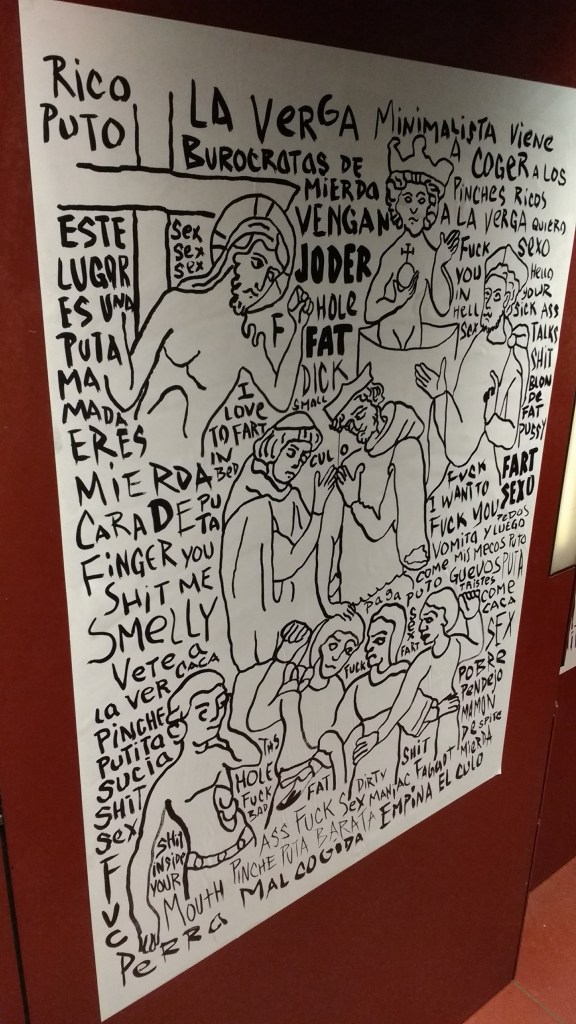 RICO
PUTO
LA VERGA MINIMALISTA VIENE
A COGER A LOS
BUROCRATAS DE
MIERDA
PINCHES RICOS
VENGAN
A LA VERGA QUIERO
SEXO
JODER
FUCK
YOU
IN
HELL
SEX
HELLO
YOUR
SICK ASS
TALKS
SHIT
BLON
DE
FAT
PUSSY
ESTE
LUGAR
ES UNA
PUTA
MA
MADA
SEX
SEX
SEX
F
HOLE
FAT
DICK
SMALL
I
LOVE
TO FART
IN
BED
CULO
ERES
MIERDA
CARA DE PU
TA
FINGER YOU
SHIT ME
SMELLY
VETE A
LA VER
CACA
PINCHE
PUTITA
SUCIA
SHIT
SEX
FUC
FUCK
I WANT TO
FUCK YOU
FART
SEXO
PEDOS
VOMITA Y LUEGO
COME MIS MECOS PUTO
GUEVOS PUTA
TRISTES
COME
CACA
SEX
PAGA
PUTO
SEX
FART
FUCK
POBRE
PENDEJO
MAMON
DESPITE
MIERDA
THIS
HOLE
FUCK
BAD
FAT
DIRTY
SHIT
ASS FUCK SEX MANIAC FAGGOT
SHIT
INSIDE
YOUR
MOUTH
PINCHE PUTA BARATA EMPINA EL CULO
PERRA MAL COGIDA